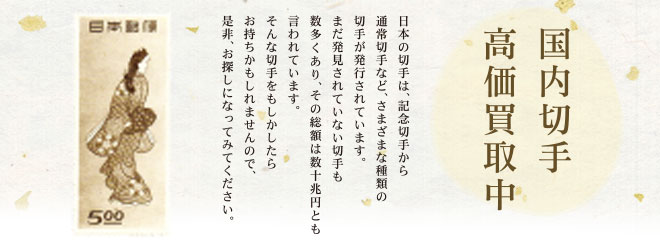 国内切手
高価買取中
日本の切手は、記念切手から
通常切手など、さまざまな種類の
切手が発行されています。
まだ発見されていない切手も
数多くあり、その総額は数十兆円とも
言われています。
そんな切手をもしかしたら
お持ちかもしれませんので、
是非、お探しになってみてください。
日本郵便
5.00